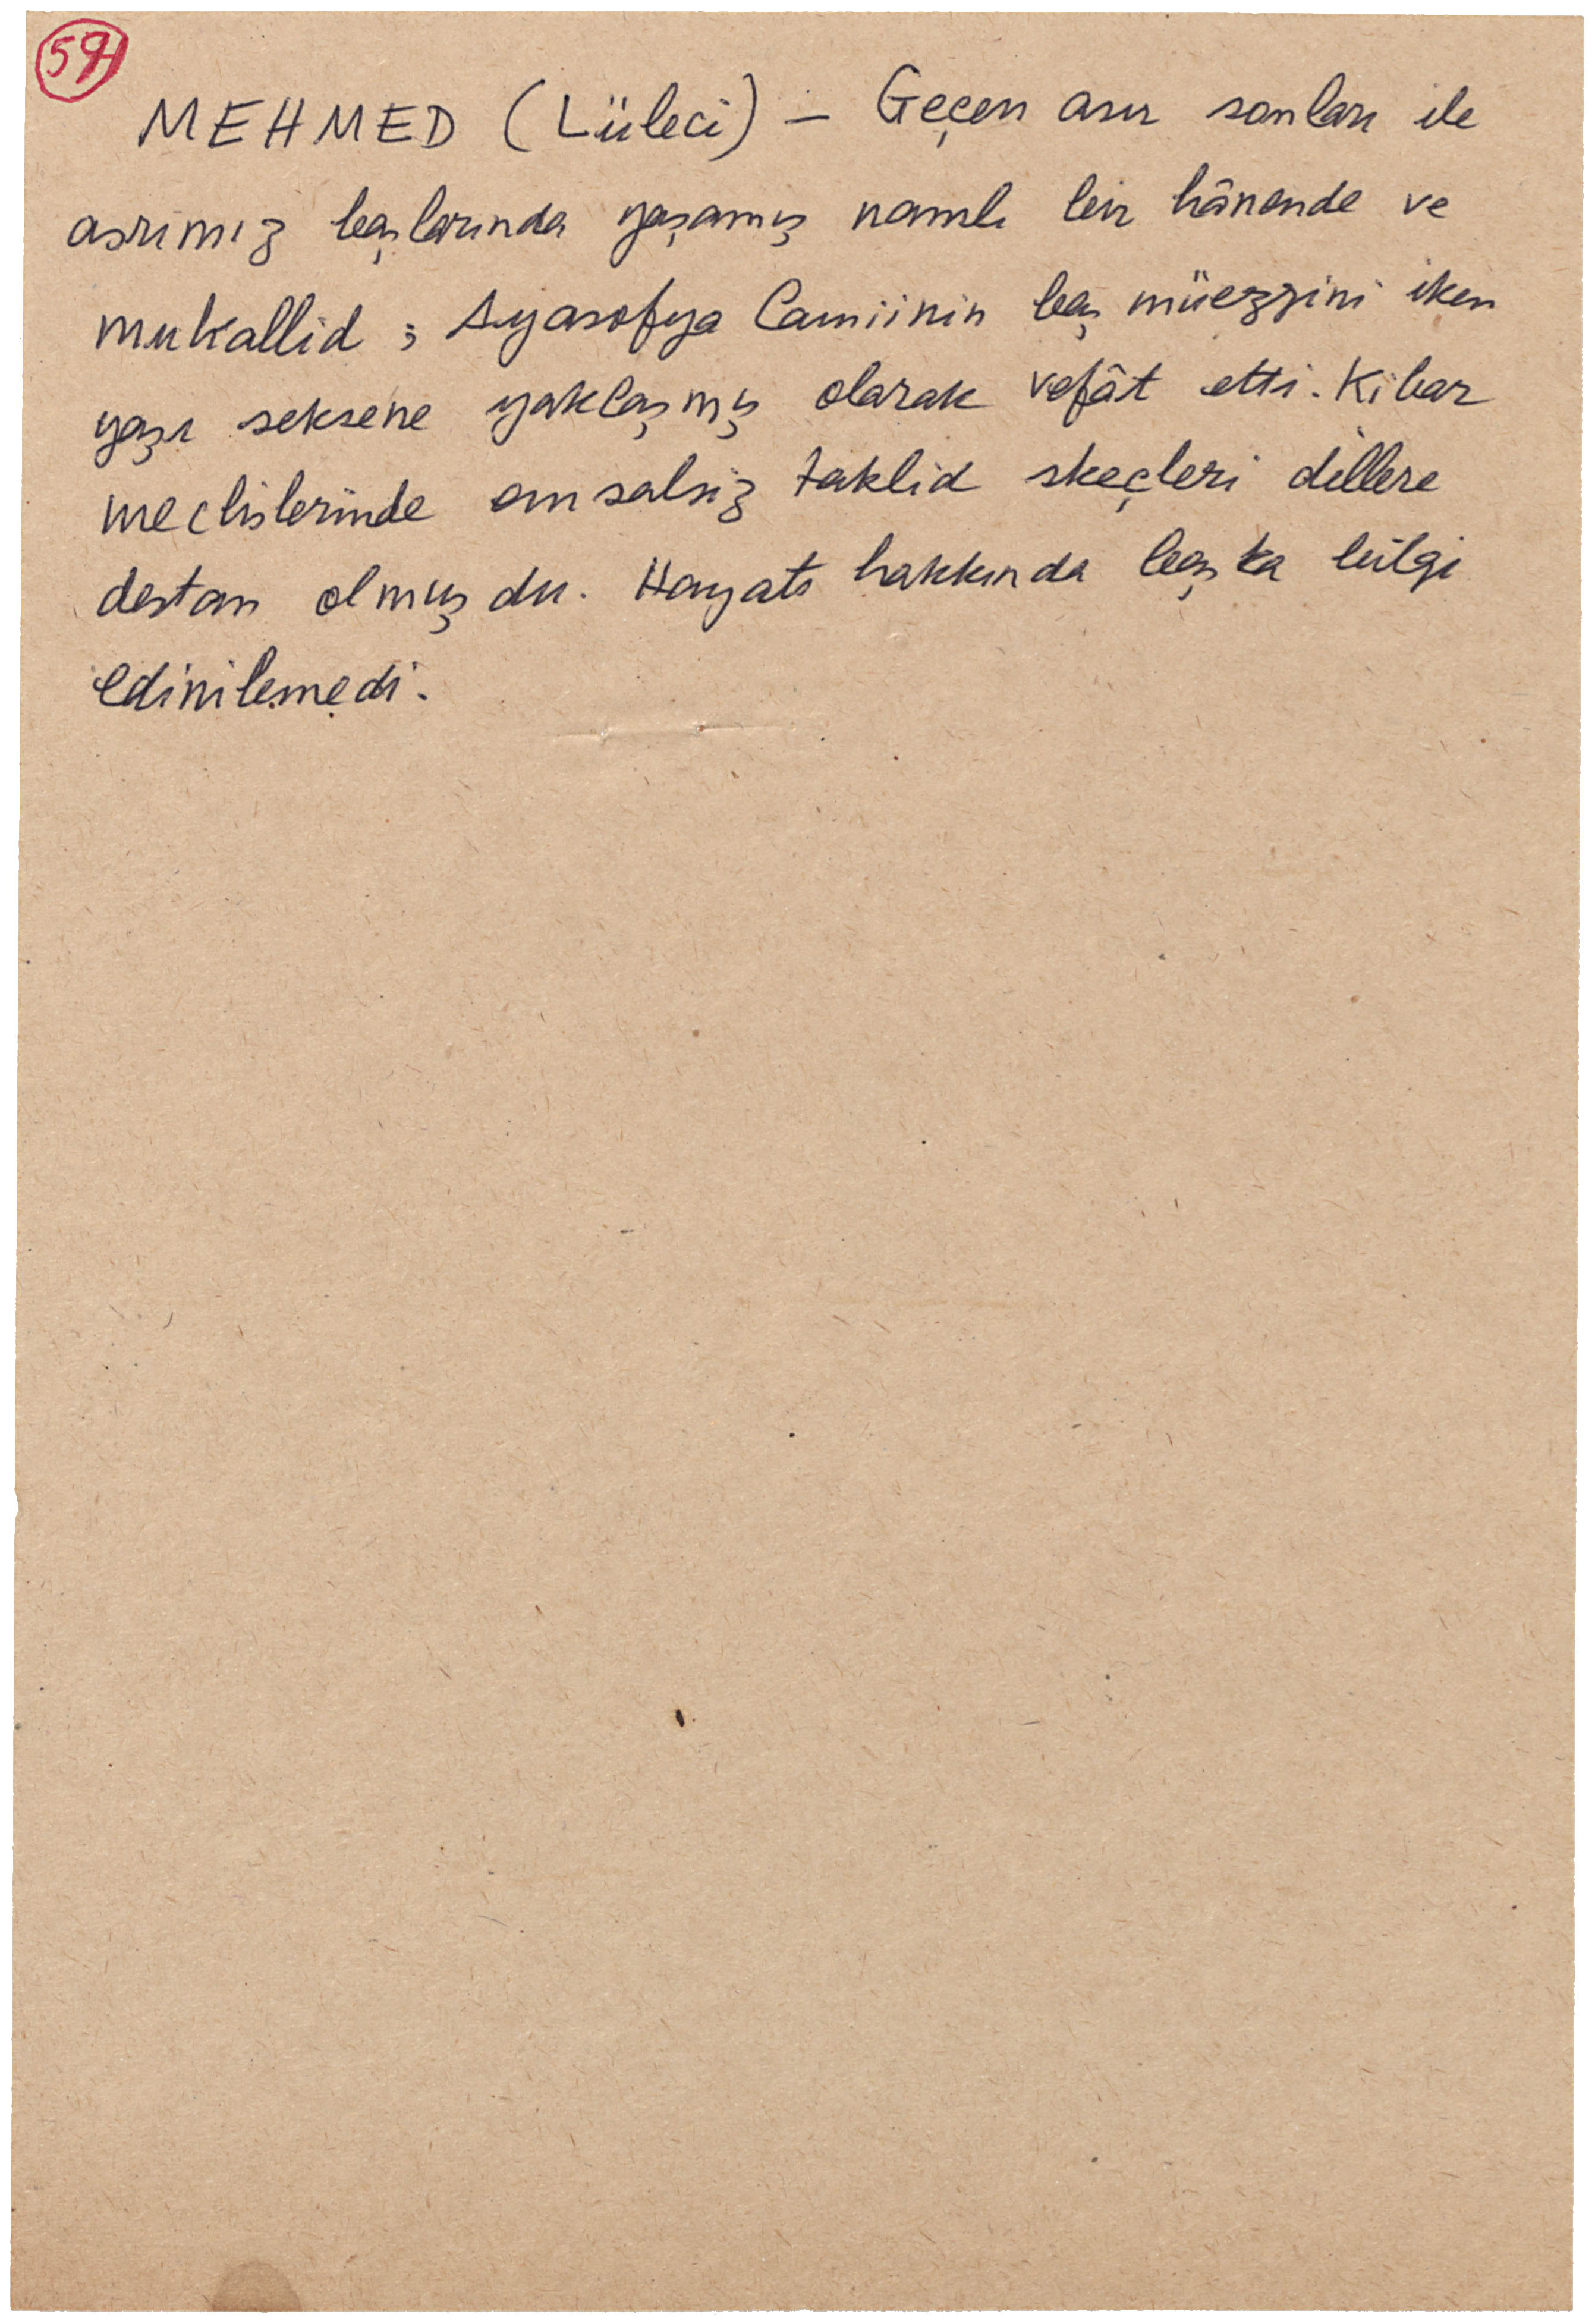 MEHMED (Lüleci) — Geçen asır sonları ile
asrımız başlarında yaşamış namlı bir hânende ve
mukallid ; Ayasofya Camiinin baş müezzini iken
yaşı seksene yaklaşmış olarak vefât etti. Kibar
meclislerinde emsalsiz taklid skeçleri dillere
destan olmuşdu. Hayatı hakkında başka bilgi
edinilemedi.